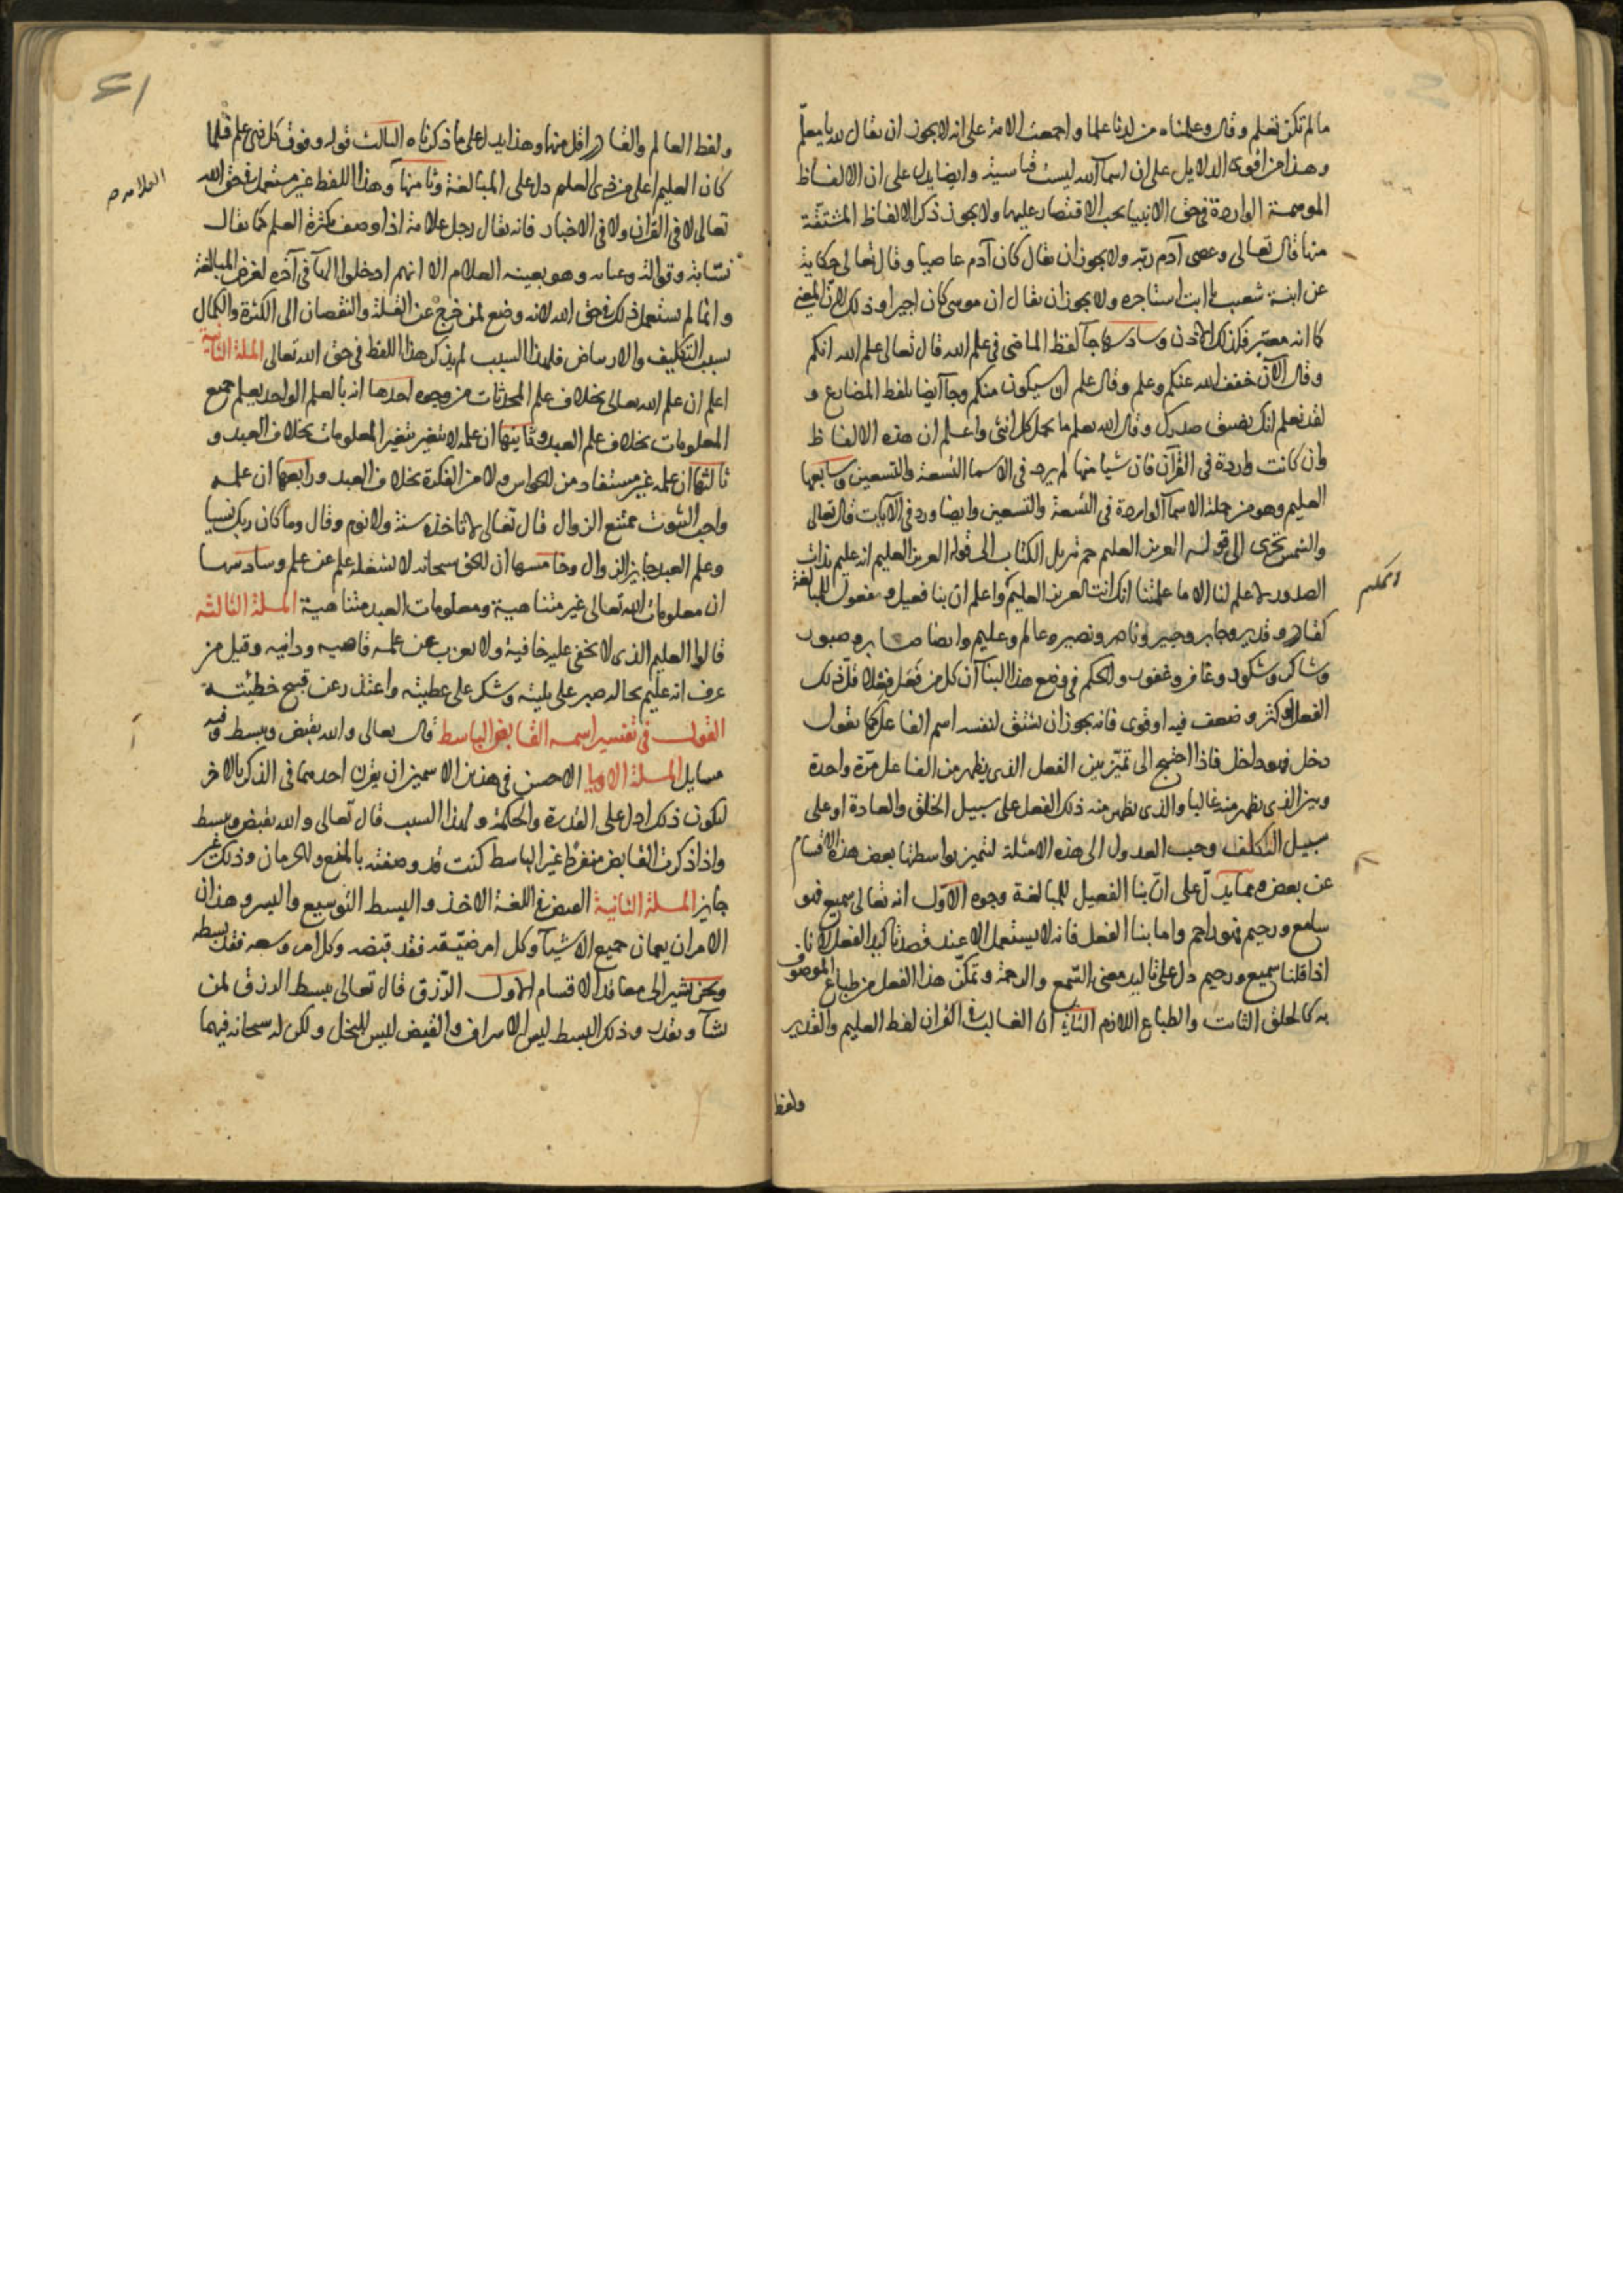 ما لم تكن تعلم وقال وعلمناه من لدنا علما واجمعت الامة على انه لا يجوز ان يقال لله يا معلم
وهذا من اقوى الدلايل على ان اسمآ الله ليست قياسية وايضا يدل على ان الالفاظ
الموهمة الواردة في حق الانبيا يجب الاقتصار عليها ولا يجوز ذكر الالفاظ المشتقة
منها قال تعالى وعصى آدم ربه ولا يجوز ان يقال كان آدم عاصيا وقال تعالى حكاية
عن ابنة شعيب يا ابت استاجره ولا يجوز ان يقال ان موسى كان اجيرا وذلك لان المعنى
كما انه معتبر فكذلك الاذن وسادسها جآ لفظ الماضى في علم الله قال تعالى علم الله انكم
وقال الآن خفف الله عنكم وعلم وقال علم ان سيكون منكم وجآ ايضا بلفظ المضارع و
لقد نعلم انك يضيق صدرك وقال الله يعلم ما تحمل كل انثى واعلم ان هذه الالفاظ
وان كانت واردة في القرآن فان شيا منها لم يرد في الاسما التسعة والتسعين وسابعها
العليم وهو من جملة الاسمآ الواردة في التسعة والتسعين وايضا ورد في الآيات قال تعالى
والشمس تجرى الى قوله العزيز العليم حم تنزيل الكتاب الى قوله العزيز العليم انه عليم بذات
الصدور لا علم لنا الا ما علمتنا انك انت العزيز العليم واعلم ان بنا فعيل وفعول للمبالغة
الحكيم
كقادر وقدير وجابر وجبير وناصر ونصير وعالم وعليم وايضا صابر وصبور
وشاكر وشكور وغافر وغفور والحكم في وضع هذا البنآ ان كل من فعل فعلا قل ذلك
الفعل او كثر وضعف فيه او قوى فانه يجوز ان يشتق لنفسه اسم الفاعل كما نقول
دخل فهو داخل فاذا احتيج الى تميز بين الفعل الذى يظهر من الفاعل مرة واحدة
وبين الذى يظهر منه غالبا والذى يظهر منه ذلك الفعل على سبيل الخلق والعادة او على
سبيل التكلف وجب العدول الى هذه الامثلة لتميز بواسطتها بعض هذه الاقسام
عن بعض ومما يدل على ان بنا الفعيل للمبالغة وجوه الاول انه تعالى سميع فهو
سامع ورحيم فهو راحم واما بنا الفعل فانه لا يستعمل الا عند قصد تاكيد الفعل لانا
اذا قلنا سميع ورحيم دل على تاكيد معنى السمع والرحمة وتمكن هذا الفعل من طباع الموصوف
به كالخلق الثابت والطباع اللازم الثانى ان الغالب في القران لفظ العليم والقدير
ولفظ
ولفظ العالم والقادر اقل منها وهذا يدل على ما ذكرناه الثالث قوله وفوق كل ذى علم عليم فلما
كان العليم اعلى من ذى العلم دل على المبالغة وثامنها وهذا اللفظ غير مستعمل في حق الله
العلام صح
تعالى لا في القران ولا في الاخبار فانه يقال رجل علامة اذا وصف بكثرة العلم كما يقال
نسابة وقوالة وهو بعينه العلام الا انهم ادخلوا الهآ في آخره لغرض المبالغة
وانما لم يستعمل ذلك في حق الله لانه وضع لمن خرج عن القلة والنقصان الى الكثرة والكمال
بسبب التكليف والارتياض فلهذا السبب لم يذكر هذا اللفظ في حق الله تعالى المسلة الثانية
اعلم ان علم الله تعالى بخلاف علم المحدثات من وجوه احدها انه بالعلم الواحد يعلم جميع
المعلومات بخلاف علم العبد وثانيها ان علمه لا يتغير بتغير المعلومات بخلاف العبد و
ثالثها ان علمه غير مستفاد من الحواس ولا من الفكرة بخلاف العبد ورابعها ان علمه
واجب الثبوت ممتنع الزوال قال تعالى لا تاخذه سنة ولا نوم وقال وما كان ربك نسيا
وعلم العبد جايز الزوال وخامسها ان الحق سبحانه لا يشغله علم عن علم وسادسها
ان معلومات الله تعالى غير متناهية ومعلومات العبد متناهية المسلة الثالثة
قالوا العليم الذى لا تخفى عليه خافية ولا يعزب عن علمه قاصيه ودانيه وقيل من
عرف انه عليم بحاله صبر على بليته وشكر على عطيته واعتذر عن قبيح خطيئته
القول في تفسير اسمه القابض الباسط قال تعالى والله يقبض ويبسط وفيه
مسايل المسلة الاولى الاحسن في هذين الاسمين ان يقرن احدهما في الذكر بالاخر
ليكون ذلك ادل على القدرة والحكمة ولهذا السبب قال تعالى والله يقبض ويبسط
واذا ذكرت القابض منفردا غير الباسط كنت قد وصفته بالمنع والحرمان وذلك غير
جايز المسلة الثانية القبض في اللغة الاخذ والبسط التوسيع واليسر وهذان
الامران يعمان جميع الاشيآ وكل امر ضيقه فقد قبضه وكل امر وسعه فقد بسطه
ونحن نشير الى معاقد الاقسام الاول الرزق قال تعالى يبسط الرزق لمن
يشآ ويقدر وذلك البسط ليس الاسراف والقبض ليس للبخل ولكن له سبحانه فيهما